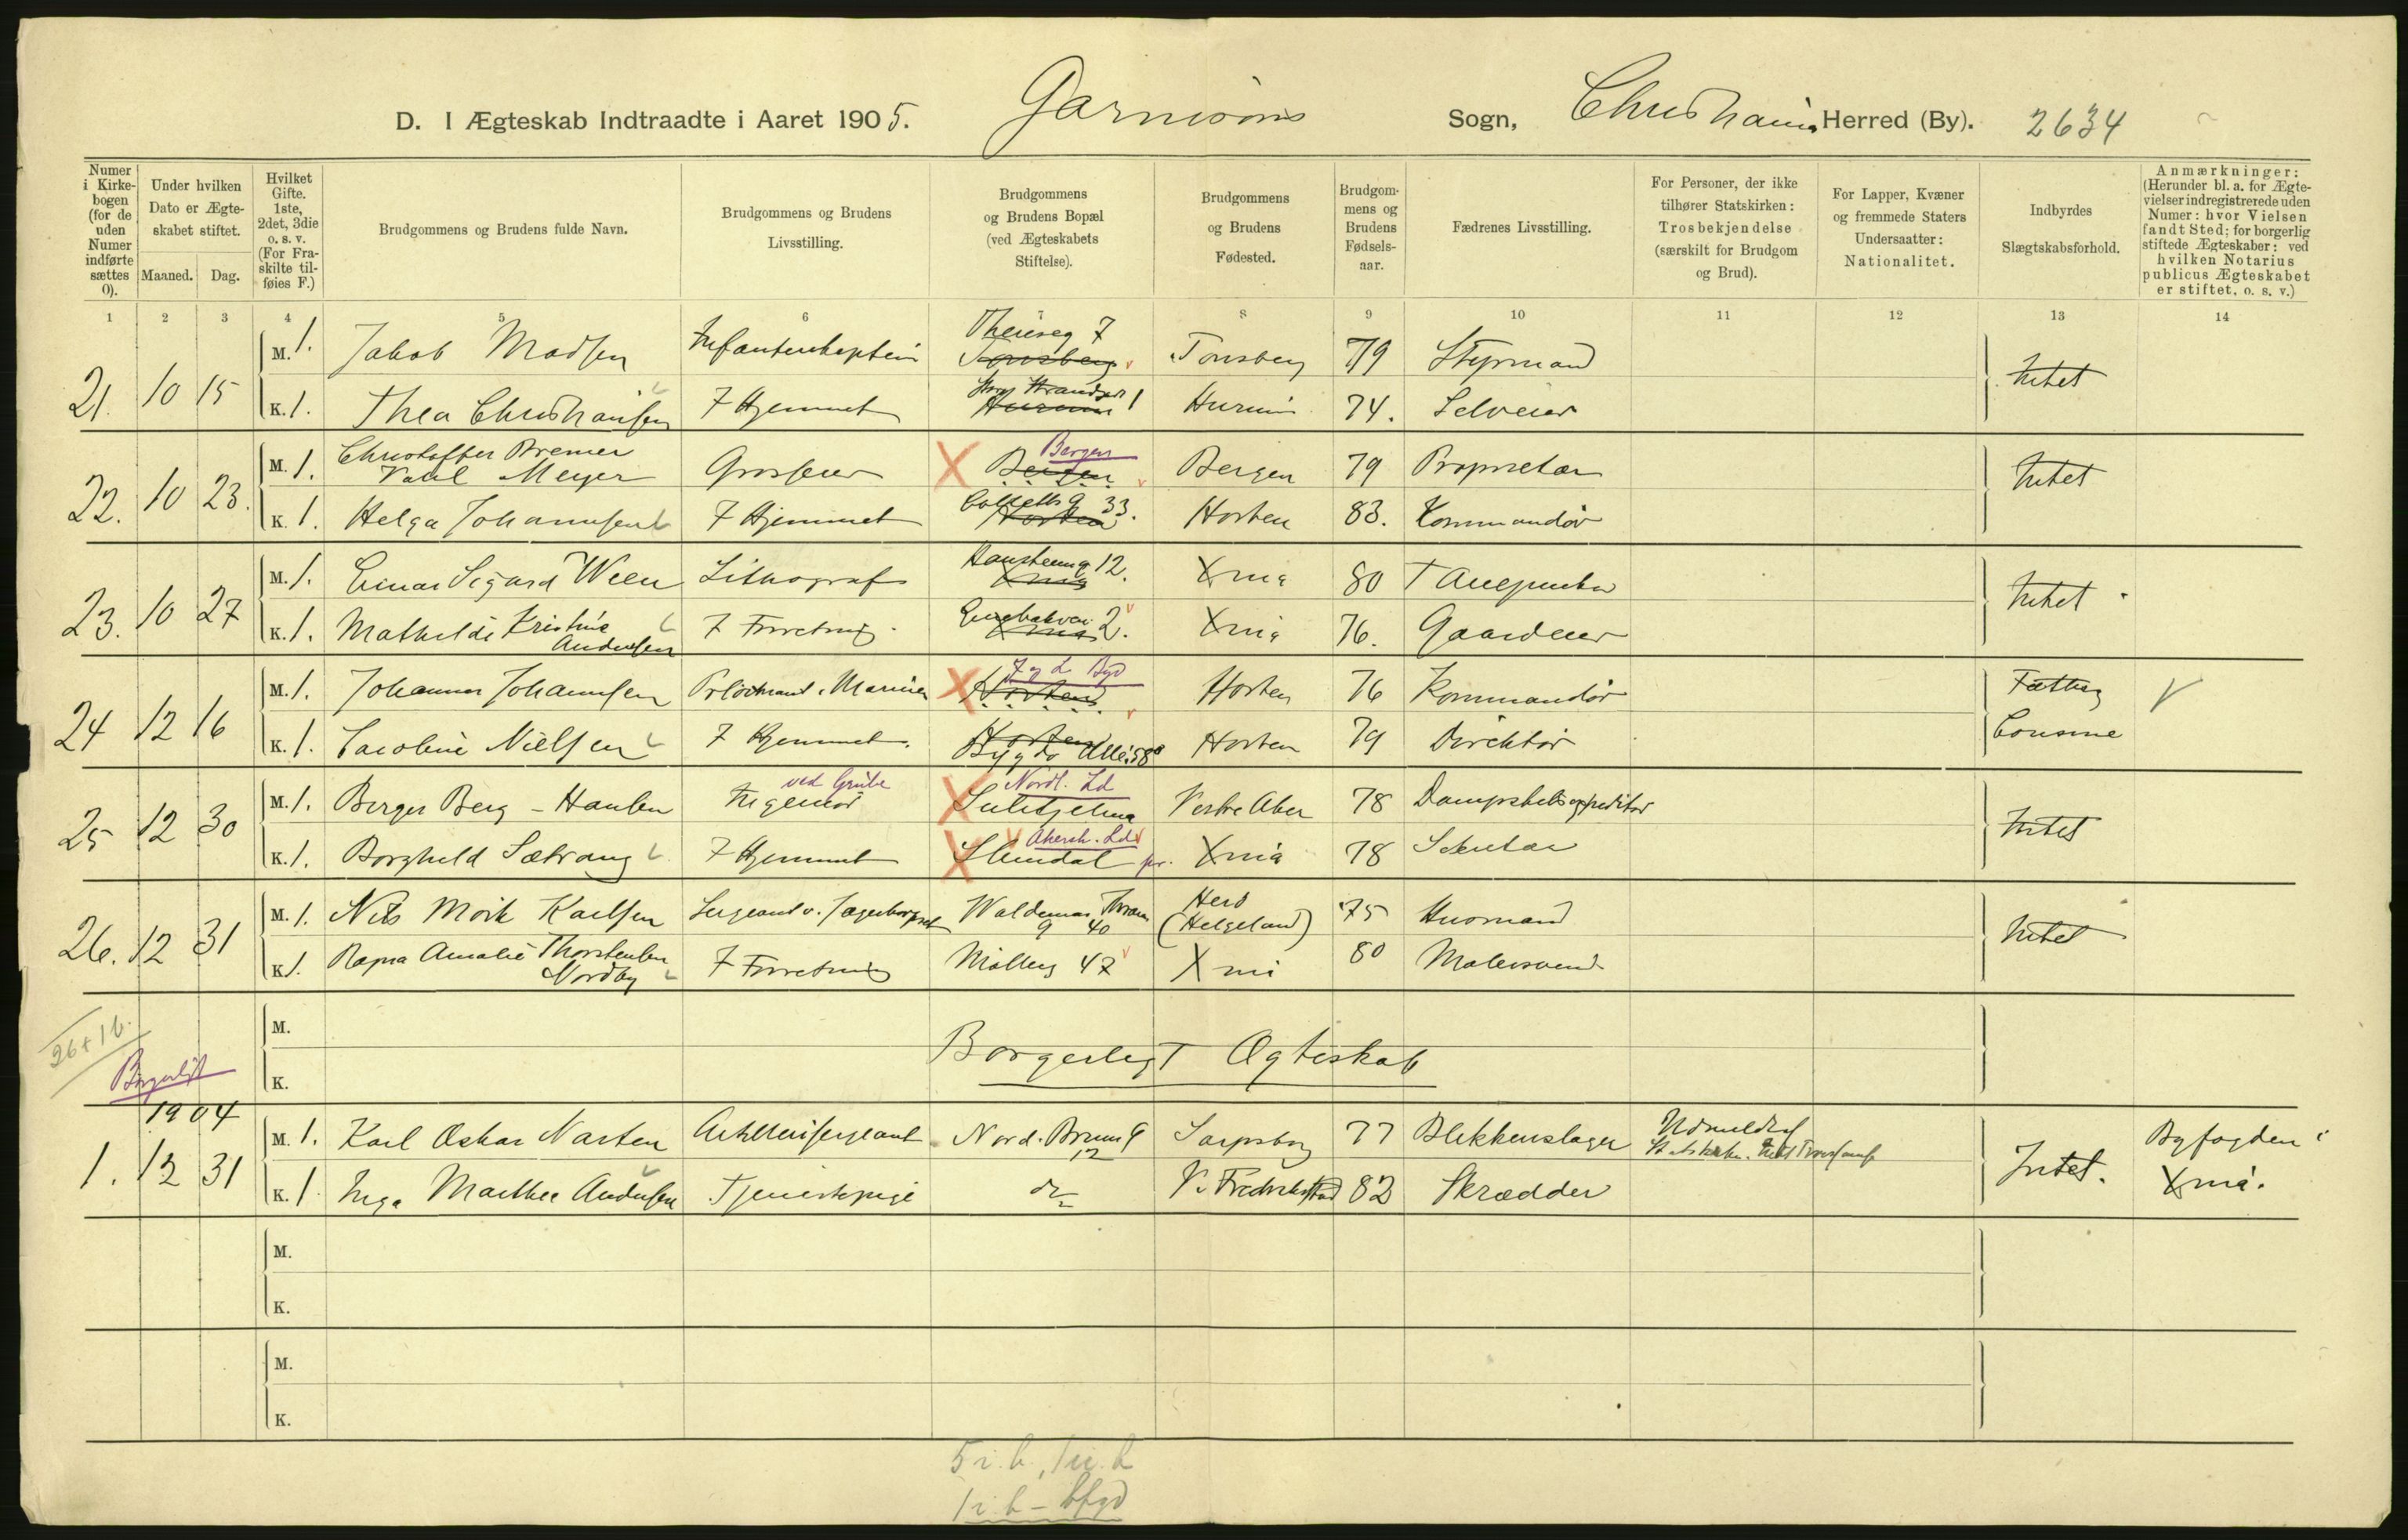 D. I Ægteskab Indtraadte i Aaret 1905. Garnisons Sogn, Christiania Herred (By). 2634
Numer i Kirkebogen (for de uden Numer indførte sættes 0).
Under hvilken Dato er Ægteskabet stiftet.
Maaned. Dag.
Hvilket Gifte. 1ste, 2det, 3die o. s. v. (For Fraskilte tilføies F.)
Brudgommens og Brudens fulde Navn.
Brudgommens og Brudens Livsstilling.
Brudgommens og Brudens Bopæl (ved Ægteskabets Stiftelse).
Brudgommens og Brudens Fødested.
Brudgommens og Brudens Fødselsaar.
Fædrenes Livsstilling.
For Personer, der ikke tilhører Statskirken: Trosbekjendelse (særskilt for Brudgom og Brud).
For Lapper, Kvæner og fremmede Staters Undersaatter: Nationalitet.
Indbyrdes Slægtskabsforhold.
Anmærkninger: (Herunder bl. a. for Ægtevielser indregistrerede uden Numer: hvor Vielsen fandt Sted; for borgerlig stiftede Ægteskaber: ved hvilken Notarius publicus Ægteskabet er stiftet, o. s. v.)
1 2 3 4 5 6 7 8 9 10 11 12 13 14
21. 10 15
M. 1. Jakob Madsen Infanterikaptein Thereseg 7 Tønsberg Tønsberg 79 Styrmand Intet
K. 1. Thea Christiansen F Hjemmet Strandgd 1 Hurum Hurum 74. Selveier
22. 10 23.
M. 1. Christoffer Bremer Vahl Meyer Grosserer Bergen Bergen Bergen 79 Proprietær Intet
K. 1. Helga Johannsen F Hjemmet Colletts g 33. Horten Horten 83. Kommandør
23. 10 27
M. 1. Einar Sigurd Ween Lithograf Hansteensg 12. Xnia Xnia 80 Intet
K. 1. Mathilde Kristine Andersen F Forretning Enebakvei 2. Xnia Xnia 76. Gaardeier
24 12 16
M. 1. Johannes Johannsen Prløitnant i Marinen Horten Horten 76 Kommandør Fætter
K. 1. Caroline Nielsen F Hjemmet. Horten Bygdø Alle 58 Horten 79 Direktør Cousine
25 12 30
M. 1. Birger Berg-Hansen Ingeniør ved Grube Nordl. Ld Sulitjelma Vestre Aker 78 Dampskibsexpeditør Intet
K. 1. Borghild Sætrang F Hjemmet Akersh. Ld Xnia 78 Sekretær
26. 12 31
M. 1. Nils Mørk Karlsen Sergeant v. Jægerkorpset Waldemar Thranes g 40 Herø (Helgeland) 75 Husmand Intet
K. 1. Ragna Amalie Thorstensen Nordby F Forretning Mølleg 47 Xnia 80 Malersvend
26+1b.
M.
K.
Borgerligt Ægteskab
Borgerligt
1904
1. 12 31
M. 1. Karl Oskar Narten Artillerisergeant Nord. Brung 12 Sarpsborg 77 Blikkenslager Udmeldt af Statskirken. Intet Trossamf Intet. Byfogden i Xnia.
K. 1. Inga Marthea Andersen Tjenestepige do V. Fredrikstad 82 Skrædder
M.
K.
M.
K.
5 i.b, 1 u.b
1 i.b - bfgd